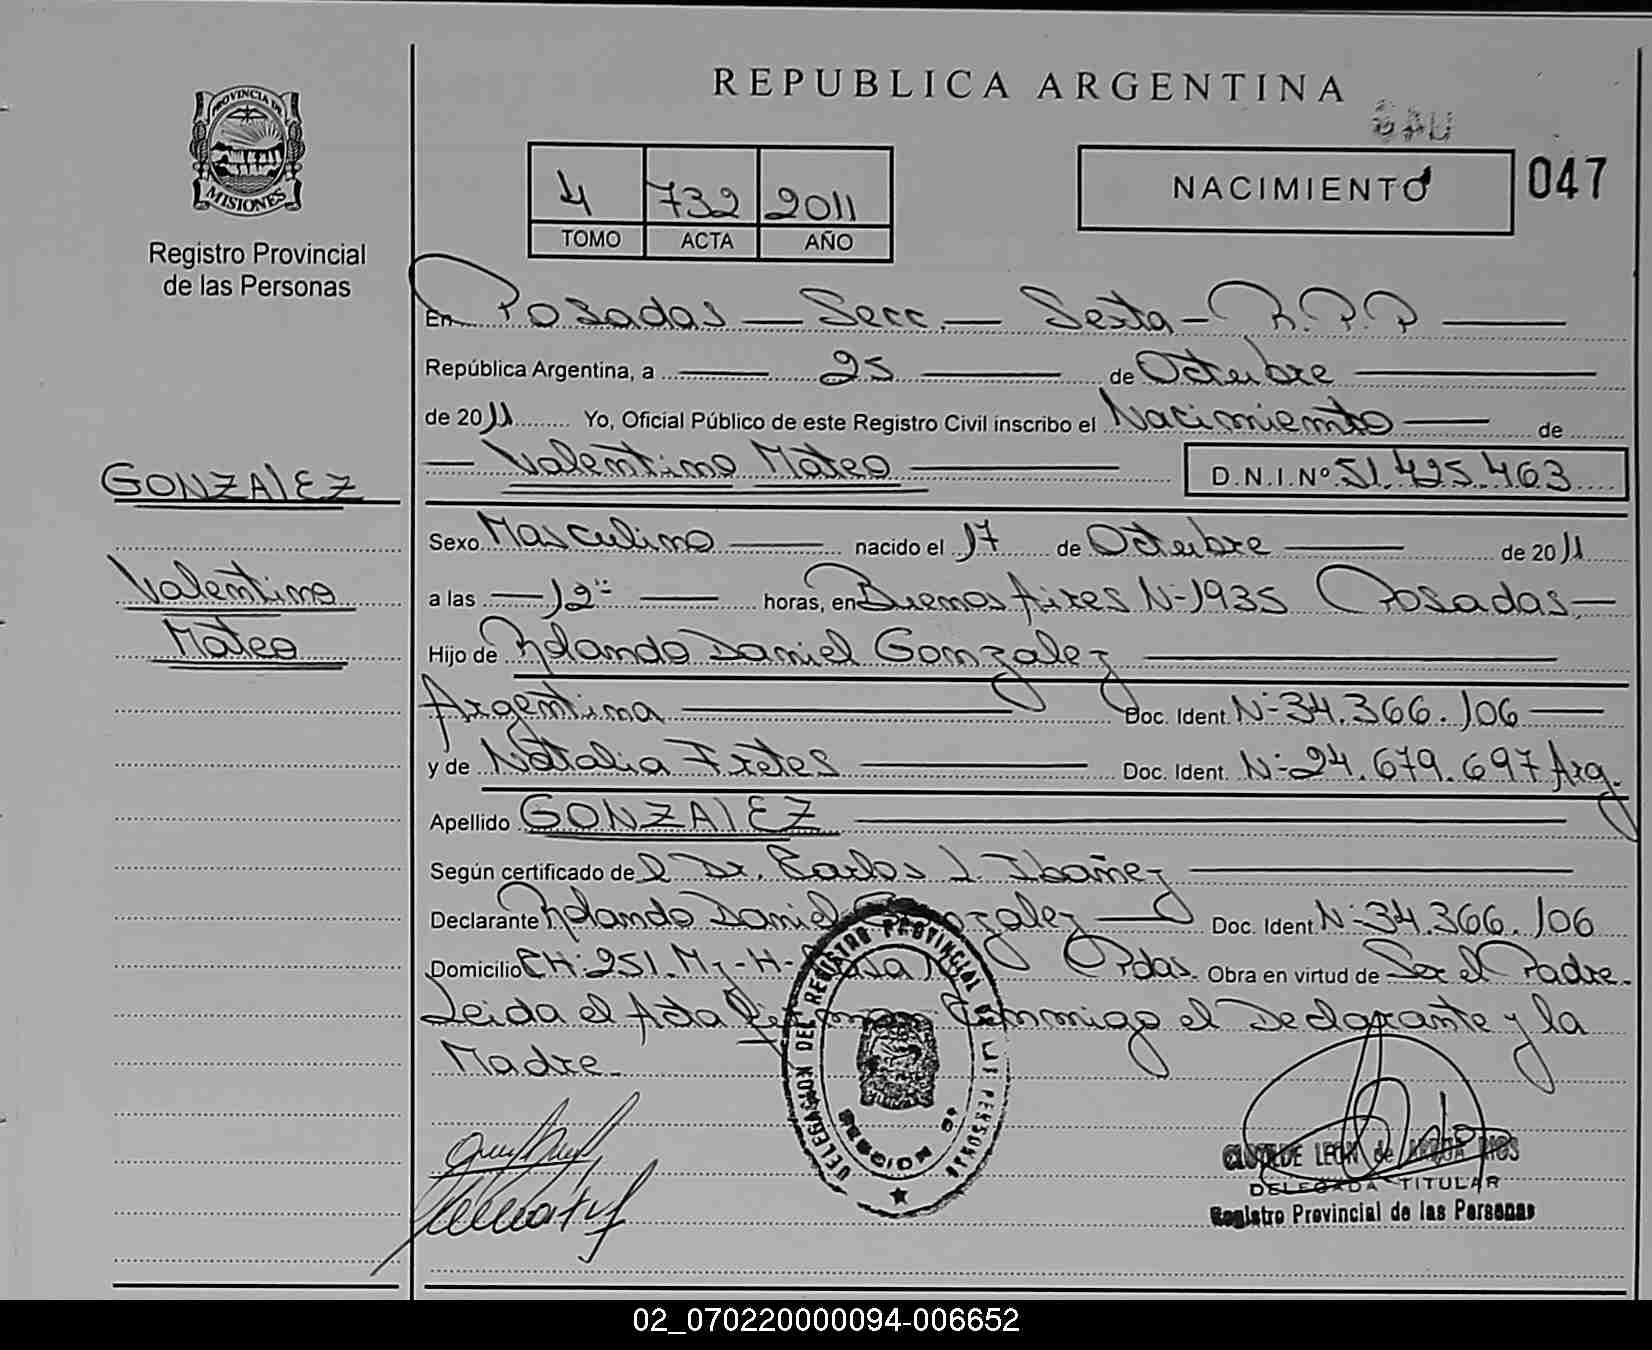 REPUBLICA ARGENTINA
PROVINCIA DE
MISIONES
Registro Provincial
de las Personas
4 732 2011
TOMO ACTA AÑO
NACIMIENTO 047
En Posadas — Secc. — Sexta - R.P.P
República Argentina, a 25 de Octubre
de 2011 Yo, Oficial Público de este Registro Civil inscribo el Nacimiento de
Valentino Mateo D.N.I.Nº 51.425.463
GONZALEZ
Valentino
Mateo
Sexo Masculino nacido el 17 de Octubre de 2011
a las 12 horas, en Buenos Aires N-1935 Posadas
Hijo de Rolando Daniel Gonzalez
Argentina Doc. Ident. Nº 34.366.106
y de Natalia Fretes Doc. Ident. Nº 24.679.697 Arg.
Apellido GONZALEZ
Según certificado del Dr. Carlos J Ibañez
Declarante Rolando Daniel Gonzalez Doc. Ident Nº 34.366.106
Domicilio CH: 251. Mz-H- Casa Pdas. Obra en virtud de Ser el Padre.
Leida el Acta Firman Conmigo el Declarante y la
Madre.
DELEGACION DEL REGISTRO PROVINCIAL DE LAS PERSONAS
LEON de RIOS
DELEGADA TITULAR
Registro Provincial de las Personas
02_070220000094-006652